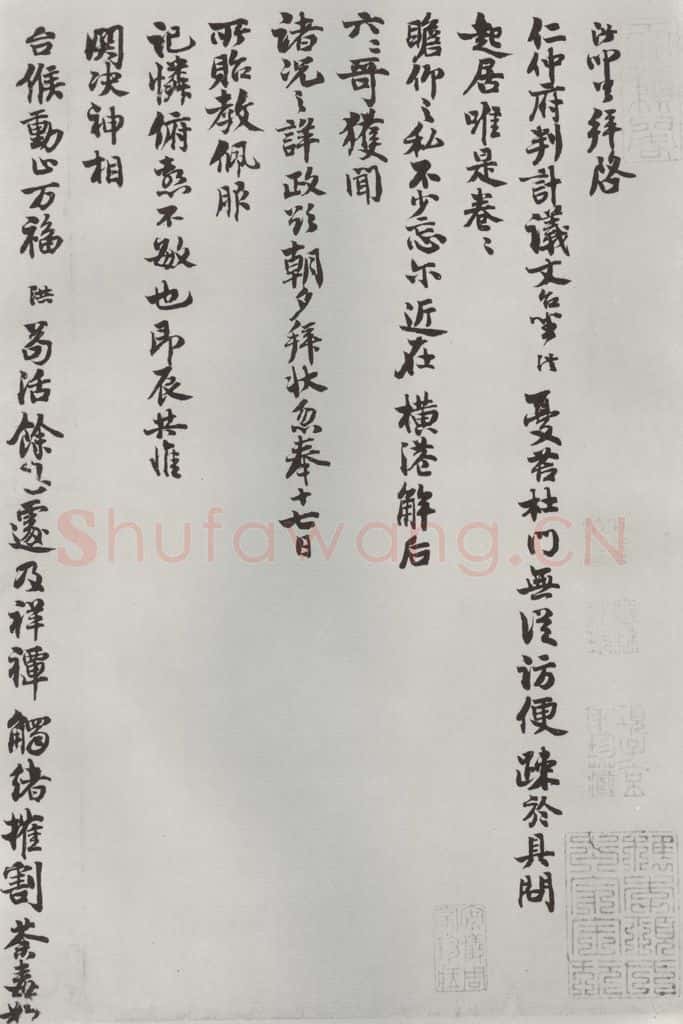 洪叩首拜啓
仁仲府判計議文台坐洪憂苦杜門無従访便踈於具問
起居唯是卷〻
瞻仰之私不少忘尒近在横港解后
六二哥獲聞
諸况之詳政欲朝夕拜状忽奉十七日
所貽教佩服
記憐俯慰不敏也即辰共惟
開决神相
台候動止万福洪苟活餘生遽及祥禫觸绪摧割荼毒如
Shufawang.CN